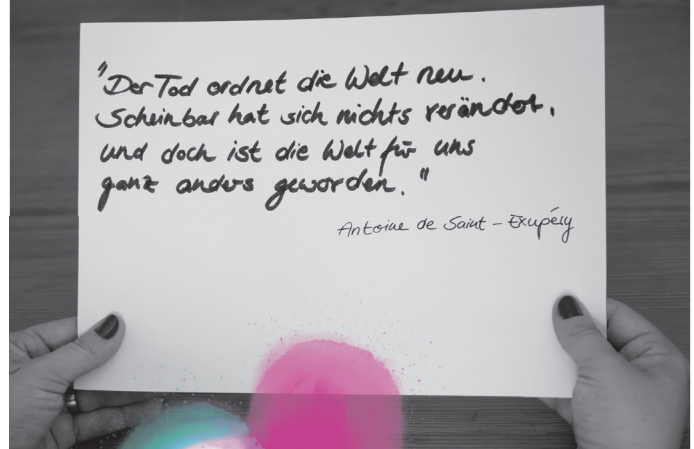 "Der Tod ordnet die Welt neu.
Scheinbar hat sich nichts verändert,
und doch ist die Welt für uns
ganz anders geworden."
Antoine de Saint - Exupéry